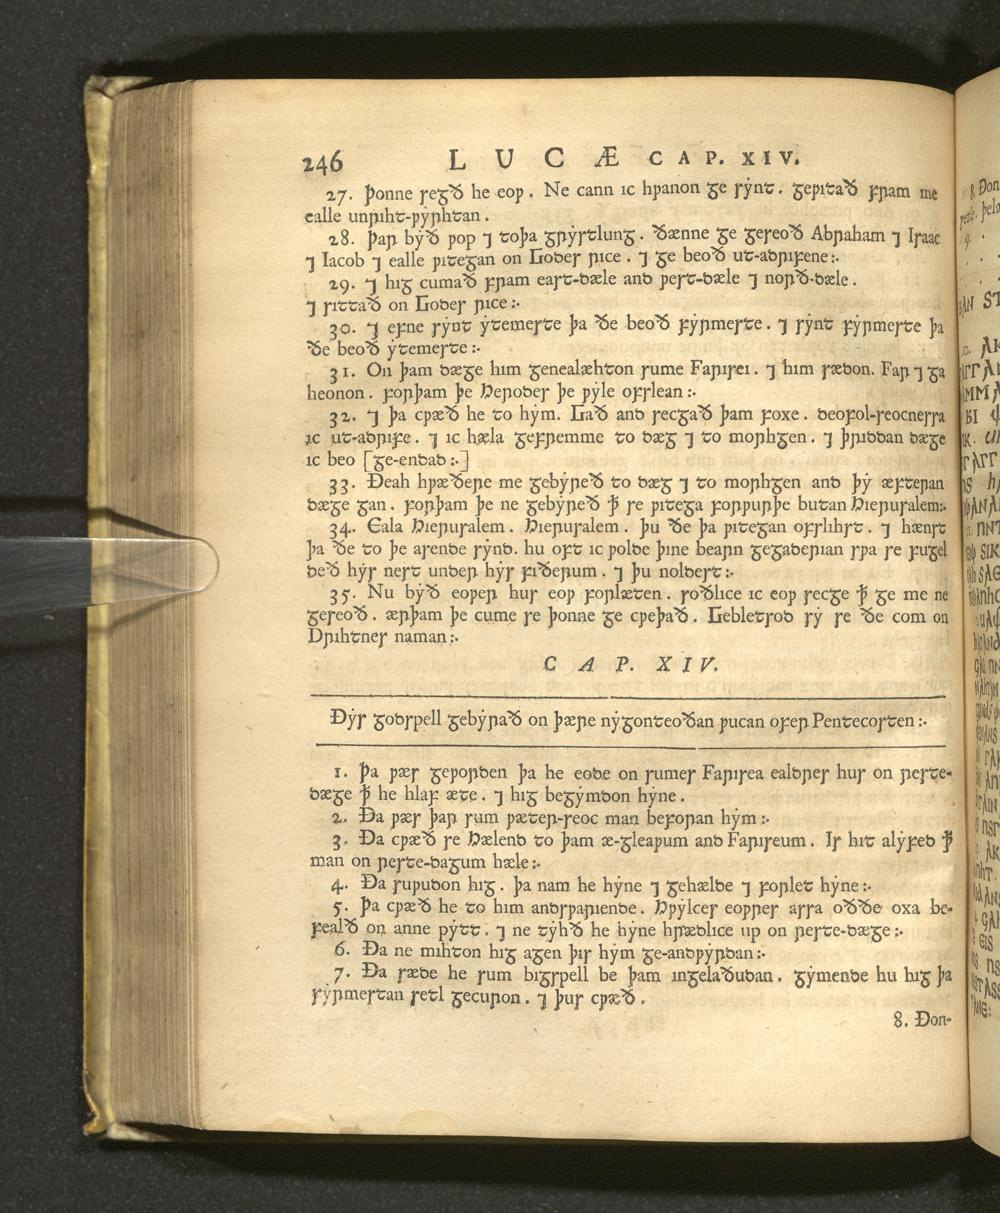 246 LUCÆ CAP. XIV.
27. Þonne segð he eoƿ. Ne cann ic hƿanon ge sẏnt. geƿitað fram me
ealle unriht-ƿẏrhtan.
28. Þar bẏð ƿop ⁊ toþa grẏstlung. ðænne ge geseoð Abraham ⁊ Isaac
⁊ Iacob ⁊ ealle ƿitegan on Godes rice. ⁊ ge beoð ut-adrifene:.
29. ⁊ hig cumað fram east-dæle and ƿest-dæle ⁊ norð-dæle.
⁊ sittað on Godes rice:.
30. ⁊ efne sẏnt ẏtemeste þa ðe beoð fẏrmeste. ⁊ sẏnt fẏrmeste þa
ðe beoð ẏtemeste:.
31. On þam dæge him genealæhton sume Farisei. ⁊ him sædon. Far ⁊ ga
heonon. forþam þe Herodes þe ƿyle ofslean:.
32. ⁊ þa cƿæð he to hẏm. Gað and secgað þam foxe. deofol-seocnessa
ic ut-adrife. ⁊ ic hæla gefremme to dæg ⁊ to morhgen. ⁊ þriddan dæge
ic beo [ge-endad:.]
33. Ðeah hƿæðere me gebẏreð to dæg ⁊ to morhgen and þẏ æfteran
dæge gan. forþam þe ne gebẏreð ꝥ se ƿitega forƿurþe butan Hierusalem:.
34. Eala Hierusalem. Hierusalem. þu ðe þa ƿitegan ofslihst. ⁊ hænst
þa ðe to þe asende sẏnd. hu oft ic ƿolde þine bearn gegaderian sƿa se fugel
deð hẏs nest under hẏs fiðerum. ⁊ þu noldest:.
35. Nu bẏð eoƿer hus eoƿ forlæten. soðlice ic eoƿ secge ꝥ ge me ne
geseoð. ærþam þe cume se þonne ge cƿeþað. Gebletsod sẏ se ðe com on
Drihtnes naman:.
CAP. XIV.
Ðẏs godspell gebẏrað on þære nẏgonteoðan ƿucan ofer Pentecosten:.
1. Þa ƿæs geƿorden þa he eode on sumes Farisea ealdres hus on reste-
dæge ꝥ he hlaf æte. ⁊ hig begẏmdon hẏne.
2. Ða ƿæs þar sum ƿæter-seoc man beforan hẏm:.
3. Ða cƿæð se Hælend to þam æ-gleaƿum and Fariseum. Is hit alẏfed ꝥ
man on reste-dagum hæle:.
4. Ða suƿudon hig. þa nam he hẏne ⁊ gehælde ⁊ forlet hẏne:.
5. Þa cƿæð he to him andsƿariende. Hƿẏlces eoƿƿer assa oððe oxa be-
fealð on anne pẏtt. ⁊ ne tẏhð he hẏne hrædlice up on reste-dæge:.
6. Ða ne mihton hig agen þis hẏm ge-andƿẏrdan:.
7. Ða sæde he sum bigspell be þam ingelaðudan. gẏmende hu hig þa
fẏrmestan setl gecuron. ⁊ þus cƿæð.
8. Ðon-